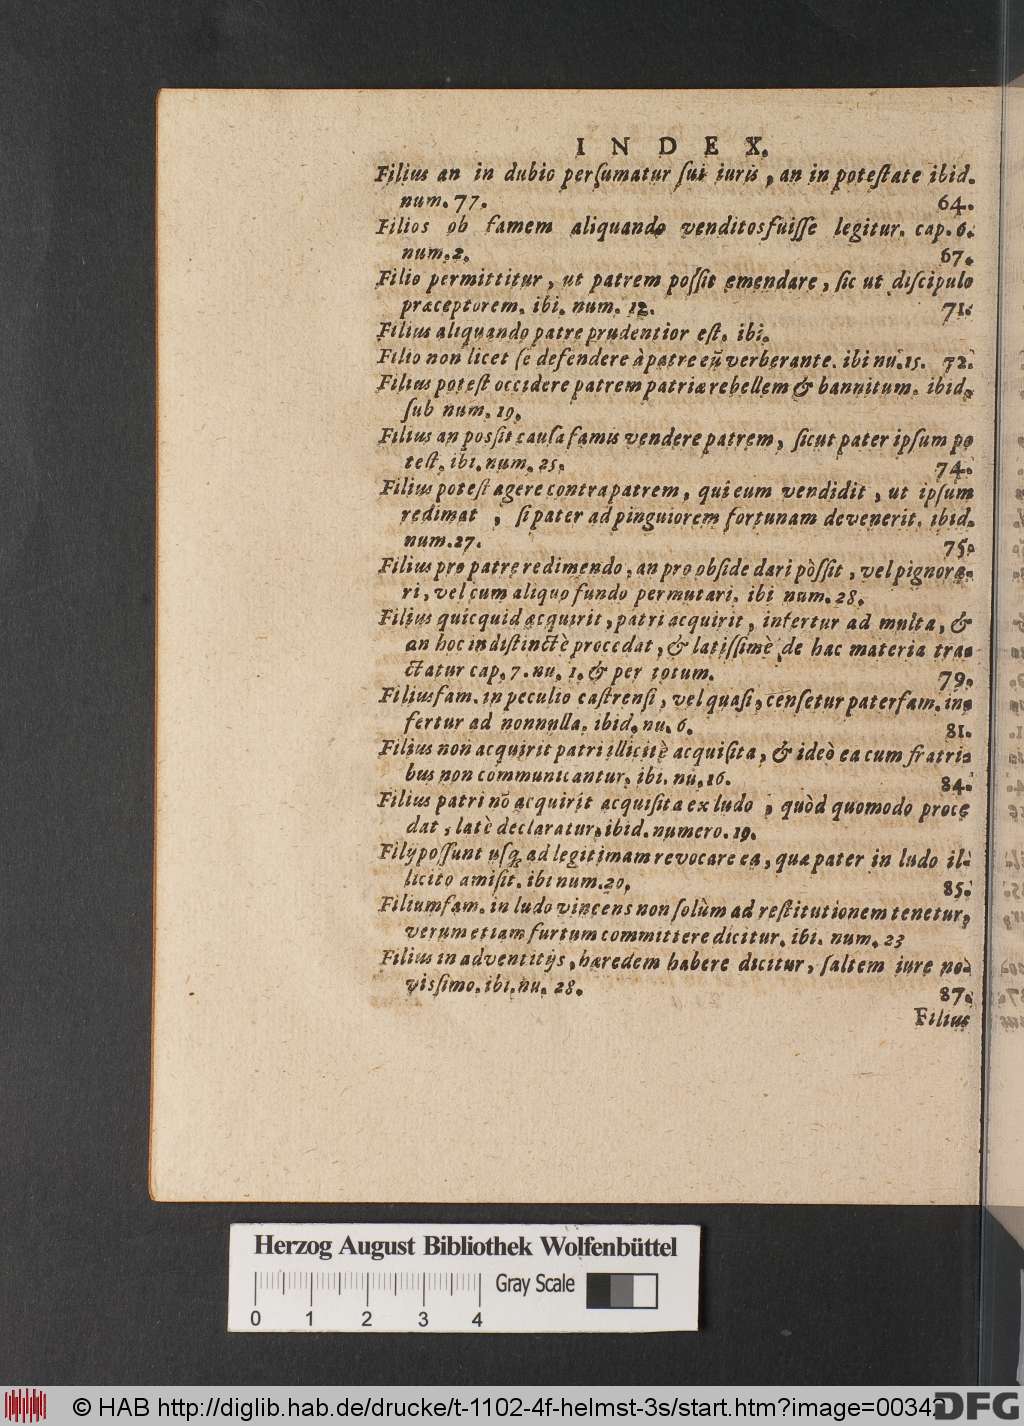 INDEX.
Filius an in dubio persumatur sui iuris, an in potestate ibid.
num. 77. 64.
Filios ob famem aliquando venditos fuisse legitur. cap. 6.
num. 2. 67.
Filio permittitur, ut patrem possit emendare, sic ut discipulo
præceptorem. ibi. num. 12. 71.
Filius aliquando patre prudentior est. ibi.
Filio non licet se defendere à patre eũ verberante. ibi nu. 15. 72.
Filius potest occidere patrem patriæ rebellem & bannitum. ibid.
sub num. 19.
Filius an possit causa famis vendere patrem, sicut pater ipsum po
test. ibi. num. 25. 74.
Filius potest agere contra patrem, qui eum vendidit, ut ipsum
redimat, si pater ad pinguiorem fortunam devenerit. ibid.
num. 27. 75.
Filius pro patre redimendo, an pro obside dari pòssit, vel pignora-
ri, vel cum aliquo fundo permutari. ibi num. 28.
Filius quicquid acquirit, patri acquirit, infertur ad multa, &
an hoc indistinctè procedat, & latissimè de hac materia tra-
ctatur cap. 7. nu. 1. & per totum. 79.
Filiusfam. in peculio castrensi, vel quasi, censetur paterfam. in-
fertur ad nonnulla. ibid. nu. 6. 81.
Filius non acquirit patri illicitè acquisita, & ideò ea cum fratri-
bus non communicantur. ibi. nu. 16. 84.
Filius patri nõ acquirit acquisita ex ludo, quòd quomodo proce
dat, latè declaratur. ibid. numero. 19.
Filij possunt usq; ad legitimam revocare ea, quæ pater in ludo il-
licito amisit. ibi num. 20. 85.
Filiumfam. in ludo vincens non solùm ad restitutionem tenetur,
verum etiam furtum committere dicitur. ibi. num. 23
Filius in adventitijs, hæredem habere dicitur, saltem iure no-
vissimo. ibi. nu. 28. 87.
Filius
Herzog August Bibliothek Wolfenbüttel
Gray Scale
0 1 2 3 4
© HAB http://diglib.hab.de/drucke/t-1102-4f-helmst-3s/start.htm?image=00342
DFG